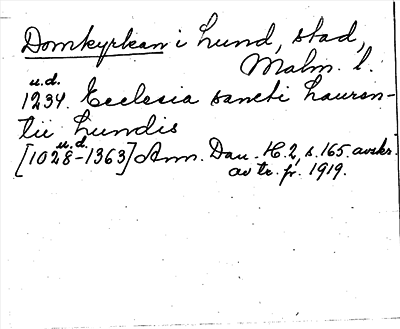 Domkyrkan i Lund, stad,
Malm. l.
u.d.
1234. Ecclesia sancti Lauren-
tii Lundis
u.d.
[1028-1363] Ann. Dan. H. 2, s. 165. avskr.
av tr. fr. 1919.